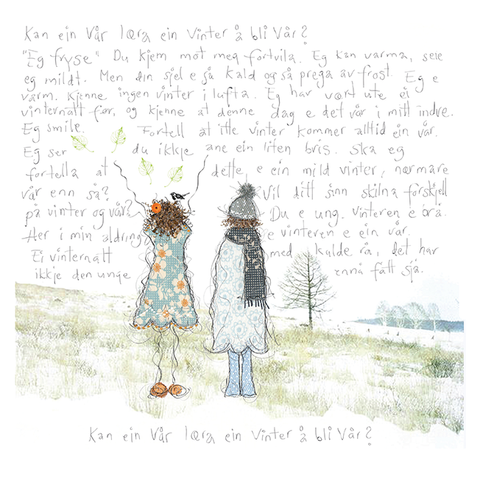 Kan ein Vår læra ein Vinter å bli Vår?
"Eg fryse" Du kjem mot meg fortvila. Eg kan varma, seie
eg mildt. Men din sjel e så kald og så prega av frost. Eg e
varm. Kjenne ingen vinter i lufta. Eg har vært ute ei
vinternatt før, og kjenne at denne dag e det vår i mitt indre.
Eg smile. Fortell at itte vinter kommer alltid ein vår.
Eg ser du ikkje ane ein liten bris. Ska eg
fortella at dette e ein mild vinter, nærmare
vår enn så? Vil ditt sinn skilna forskjell
på vinter og vår? Du e ung. Vinteren e bra.
Her i min aldring e vinteren e ein vår.
Ei vinternatt med kulde rå, det har
ikkje den unge ennå fått sjå.
Kan ein Vår læra ein Vinter å bli Vår?